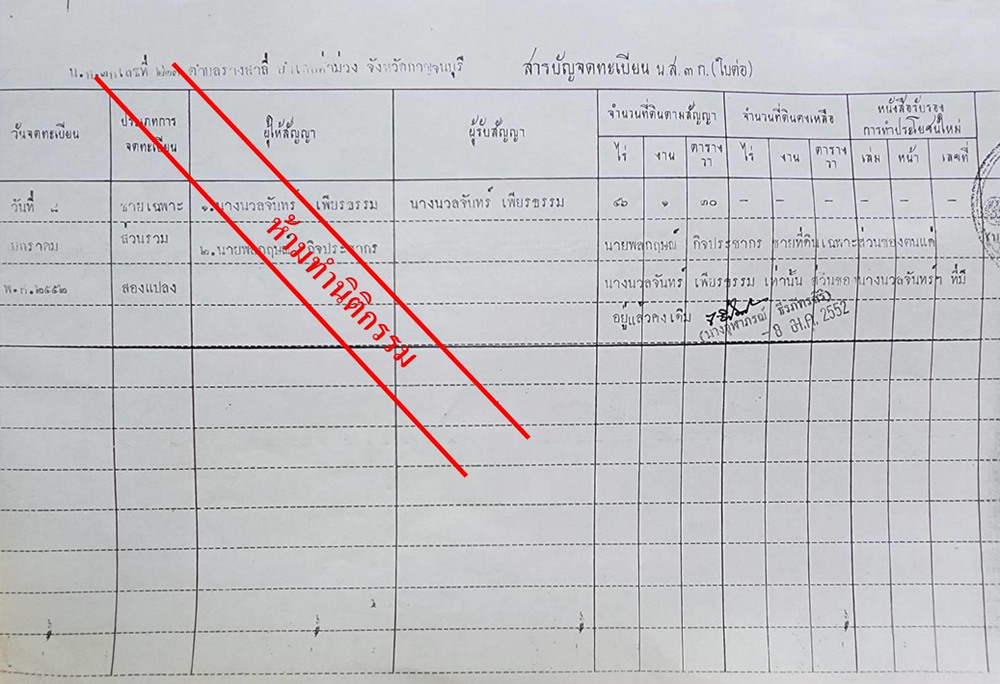 น.ส.๓ก เลขที่ ตำบลรางสาลี่ อำเภอท่าม่วง จังหวัดกาญจนบุรี สารบัญจดทะเบียน น.ส.๓ ก.(ใบต่อ)
วันจดทะเบียน ประเภทการจดทะเบียน ผู้ให้สัญญา ผู้รับสัญญา จำนวนที่ดินตามสัญญา จำนวนที่ดินคงเหลือ หนังสือรับรองการทำประโยชน์ใหม่
ไร่ งาน ตารางวา ไร่ งาน ตารางวา เล่ม หน้า เลขที่
วันที่ ๘ ขายเฉพาะ ๑.นางนวลจันทร์ เพียรธรรม นางนวลจันทร์ เพียรธรรม ๔๖ ๑ ๓๐ - - - - - -
มกราคม ส่วนรวม ๒.นายพลกฤษณ์ กิจประชากร นายพลกฤษณ์ กิจประชากร ขายที่ดินเฉพาะส่วนของตนแก่
พ.ศ.๒๕๕๒ สองแปลง นางนวลจันทร์ เพียรธรรม เท่านั้น ส่วนของนางนวลจันทร์ฯ ที่มี
อยู่แล้วคงเดิม
- 8 ม.ค. 2552
ห้ามทำนิติกรรม